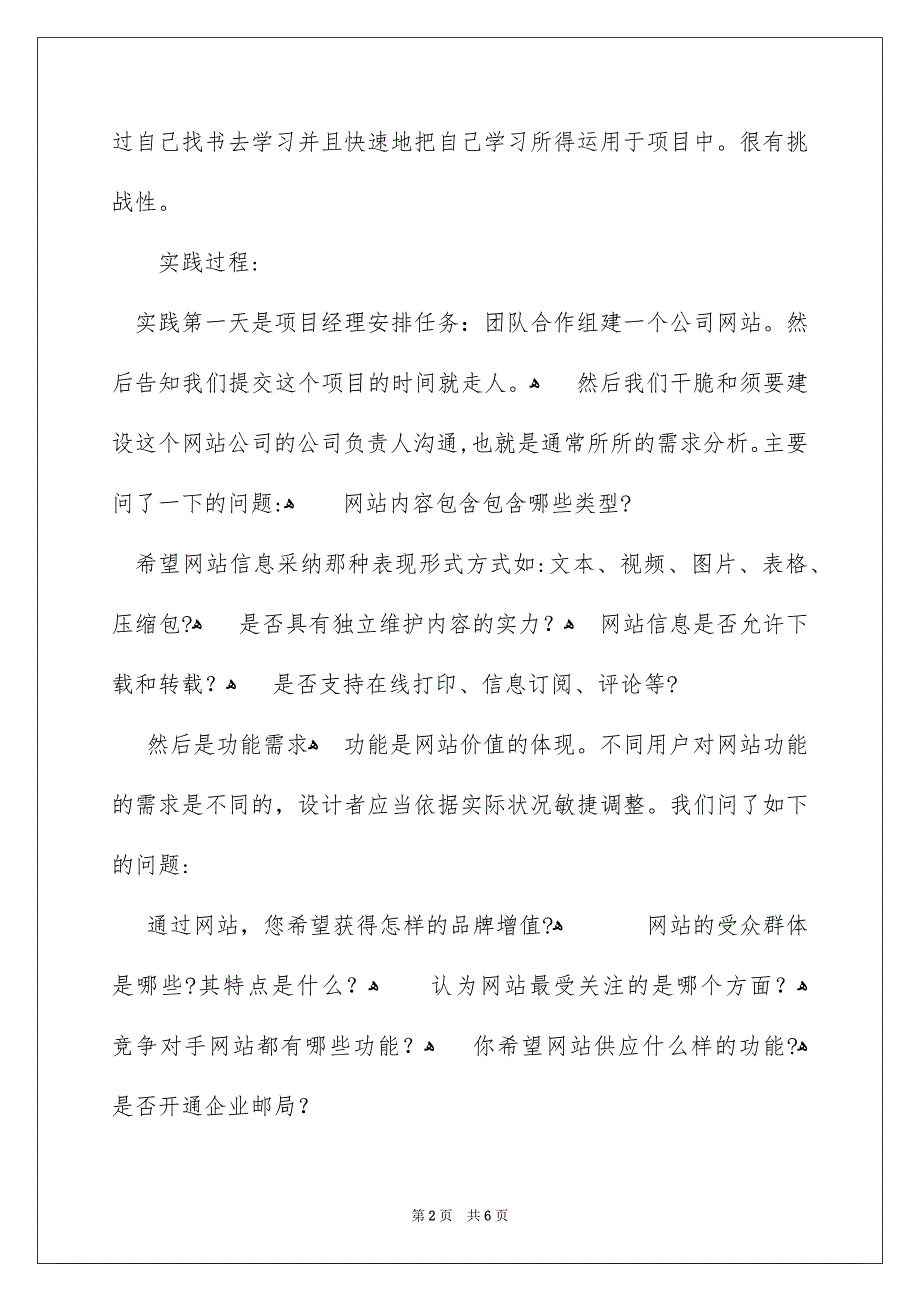 过自己找书去学习并且快速地把自己学习所得运用于项目中。很有挑
战性。
实践过程:
实践第一天是项目经理安排任务：团队合作组建一个公司网站。然
后告知我们提交这个项目的时间就走人。ﻫ 然后我们干脆和须要建
设这个网站公司的公司负责人沟通,也就是通常所所的需求分析。主要
问了一下的问题:ﻫ 网站内容包含包含哪些类型?
希望网站信息采纳那种表现形式方式如:文本、视频、图片、表格、
压缩包?ﻫ 是否具有独立维护内容的实力？ﻫ 网站信息是否允许下
载和转载？ﻫ 是否支持在线打印、信息订阅、评论等?
然后是功能需求ﻫ 功能是网站价值的体现。不同用户对网站功能
的需求是不同的，设计者应当依据实际状况敏捷调整。我们问了如下
的问题:
通过网站，您希望获得怎样的品牌增值?ﻫ 网站的受众群体
是哪些?其特点是什么？ﻫ 认为网站最受关注的是哪个方面？ﻫ
竞争对手网站都有哪些功能？ﻫ 你希望网站供应什么样的功能?ﻫ
是否开通企业邮局？
第2页 共6页